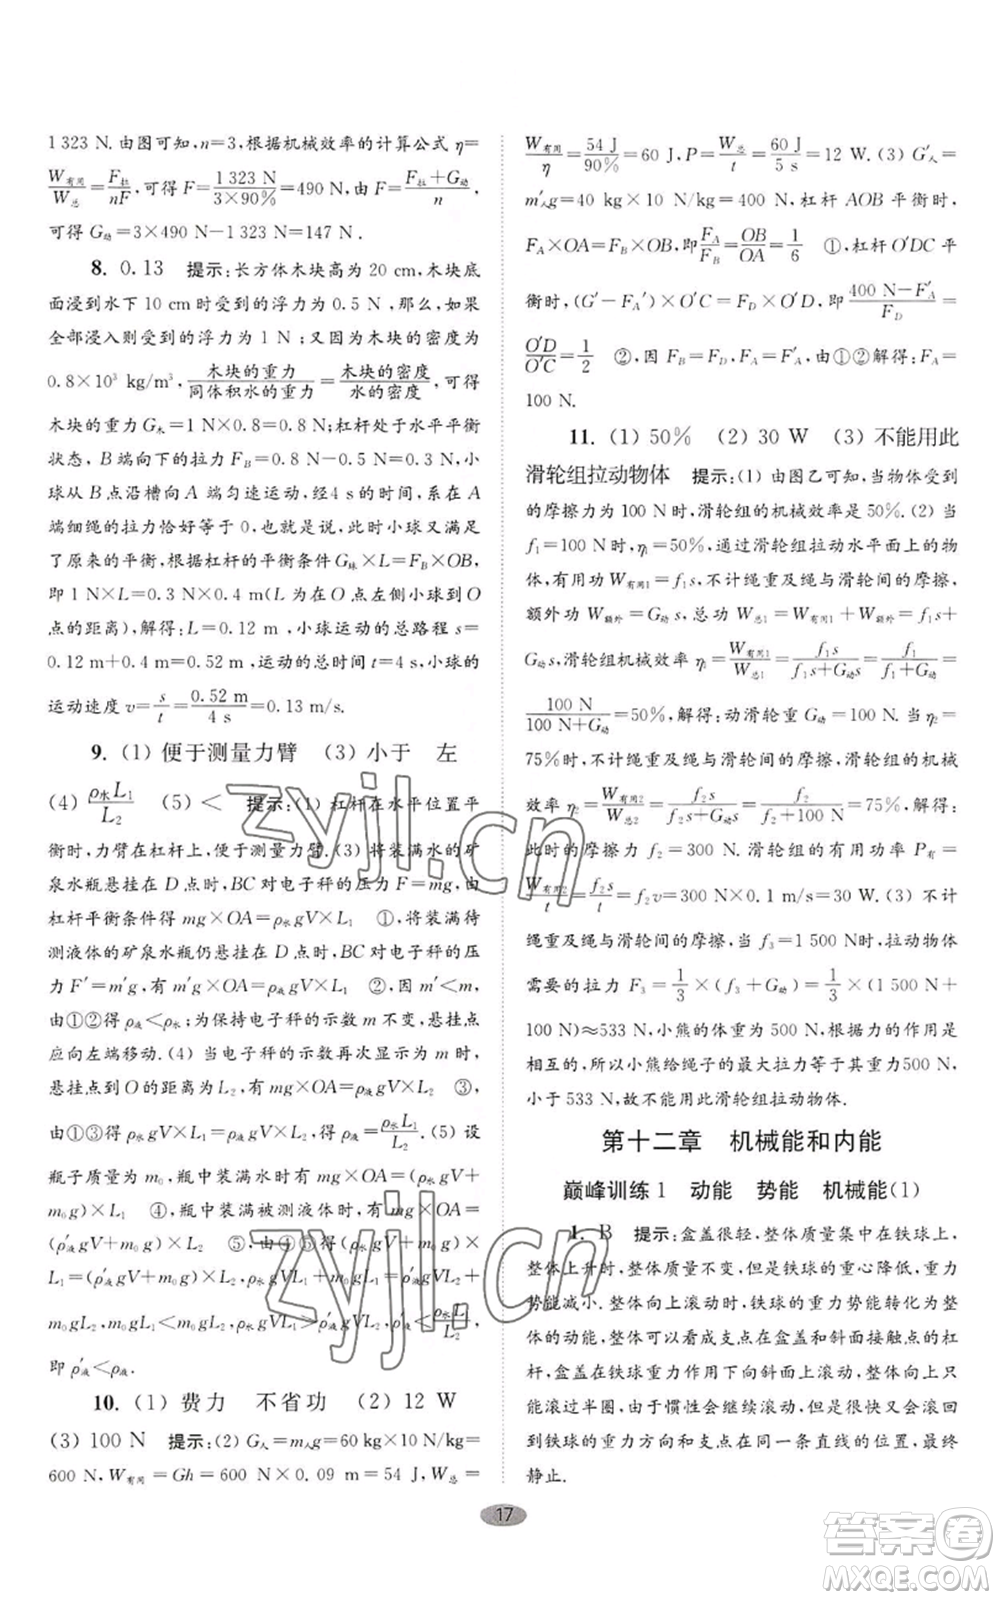 1 323 N. 由图可知, n=3, 根据机械效率的计算公式 η=
W有用/W总=F拉/nF, 可得 F=1 323 N/3×90%=490 N, 由 F=F拉+G动/n,
可得 G动=3×490 N-1 323 N=147 N.
8. 0.13 提示: 长方体木块高为 20 cm, 木块底
面浸到水下 10 cm 时受到的浮力为 0.5 N, 那么, 如果
全部浸入则受到的浮力为 1 N; 又因为木块的密度为
0.8×10³ kg/m³, 木块的重力/同体积水的重力=木块的密度/水的密度, 可得
木块的重力 G木=1 N×0.8=0.8 N; 杠杆处于水平平衡
状态, B 端对木块的拉力 FB=0.8 N-0.5 N=0.3 N, 小
球从 B 点沿槽向 A 端匀速运动, 经 4 s 的时间, 系在 A
端细绳的拉力恰好等于 0, 也就是说, 此时小球又满足
了原来的平衡, 根据杠杆的平衡条件 G球×L=FB×OB,
即 1 N×L=0.3 N×0.4 m(L 为在 O 点左侧小球到 O
点的距离), 解得: L=0.12 m, 小球运动的总路程 s=
0.12 m+0.4 m=0.52 m, 运动的总时间 t=4 s, 小球的
运动速度 v=s/t=0.52 m/4 s=0.13 m/s.
9. (1) 便于测量力臂 (3) 小于 左
(4) ρ水L1/L2 (5) < 提示: (1) 杠杆在水平位置平
衡时, 力臂在杠杆上, 便于测量力臂. (3) 将装满水的矿
泉水瓶悬挂在 D 点时, BC 对电子秤的压力 F=mg, 由
杠杆平衡条件得 mg×OA=ρ水gV×L1 ①, 将装满待
测液体的矿泉水瓶仍悬挂在 D 点时, BC 对电子秤的压
力 F′=m′g, 有 m′g×OA=ρ液gV×L1 ②, 因 m′<m,
由①②得 ρ液<ρ水; 为保持电子秤的示数 m 不变, 悬挂点
应向左端移动. (4) 当电子秤的示数再次显示为 m 时,
悬挂点到O的距离为 L2, 有 mg×OA=ρ液gV×L2 ③,
由①③得 ρ水gV×L1=ρ液gV×L2, ρ液=ρ水L1/L2. (5) 设
瓶子质量为 m0, 瓶中装满水时有 mg×OA=(ρ水gV+
m0g)×L1 ④, 瓶中装满被测液体时, 有 mg×OA=
(ρ′液gV+m0g)×L2 ⑤, 由④⑤得 (ρ水gV+m0g)×
L1=(ρ′液gV+m0g)×L2, ρ水gVL1=ρ′液gVL2+
m0gL2-m0gL1, m0gL1<m0gL2, ρ水gVL1>ρ′液gVL2, ρ′液<ρ水L1/L2,
即 ρ′液<ρ液.
10. (1) 费力 不省功 (2) 12 W
(3) 100 N 提示: (2) G人=m人g=60 kg×10 N/kg=
600 N, W有用=Gh=600 N×0.09 m=54 J, W总=
W有用/η=54 J/90%=60 J, P=W总/t=60 J/5 s=12 W. (3) G′人=
m′人g=40 kg×10 N/kg=400 N, 杠杆 AOB 平衡时,
FA×OA=FB×OB, 即FA/FB=OB/OA=1/6 ①, 杠杆 O′DC 平
衡时, (G′-FA′)×O′C=FD×O′D, 即400 N-F′A/FD=
O′D/O′C=1/2 ②, 因 FB=FD, FA=F′A, 由①②解得: FA=
100 N.
11. (1) 50% (2) 30 W (3) 不能用此
滑轮组拉动物体 提示: (1) 由图乙可知, 当物体受到
的摩擦力为 100 N 时, 滑轮组的机械效率是 50%. (2) 当
f1=100 N时, η1=50%, 通过滑轮组拉动水平面上的物
体, 有用功 W有用1=f1s, 不计绳重及绳与滑轮的摩擦,
额外功 W额外=G动s, 总功 W总1=W有用1+W额外=f1s+
G动s, 滑轮组机械效率 η1=W有用1/W总1=f1s/f1s+G动s=f1/f1+G动=
100 N/100 N+G动=50%, 解得: 动滑轮重 G动=100 N. 当 η2=
75%时, 不计绳重及绳与滑轮的摩擦, 滑轮组的机械
效率 η2=W有用2/W总2=f2s/f2s+G动s=f2/f2+G动=75%, 解得:
此时的摩擦力 f2=300 N. 滑轮组的有用功率 P有=
W有用2/t=f2s/t=f2v=300 N×0.1 m/s=30 W. (3) 不计
绳重及绳与滑轮的摩擦, 当 f3=1 500 N时, 拉动物体
需要的拉力 F3=1/3×(f3+G动)=1/3×(1 500 N+
100 N)≈533 N, 小熊的体重为 500 N, 根据力的作用是
相互的, 所以小熊给绳子的最大拉力等于其重力500 N,
小于 533 N, 故不能用此滑轮组拉动物体.
第十二章 机械能和内能
巅峰训练 1 动能 势能 机械能(1)
1. B 提示: 盒盖很轻, 整体质量集中在铁球上,
整体上升时, 整体质量不变, 但是铁球的重心降低, 重力
势能减小. 整体向上滚动时, 铁球的重力势能转化为整
体的动能, 整体可以看成支点在盒盖和斜面接触点的杠
杆, 盒盖在铁球重力作用下向斜面上滚动, 当铁球随盒
盖滚过半圈, 由于惯性会继续滚动, 但最终又会滚回到
回到铁球的重力方向和支点在同一条直线的位置, 最终
静止.
17
zyjl.cn
zyjl.cn
答案圈
MXQE.COM